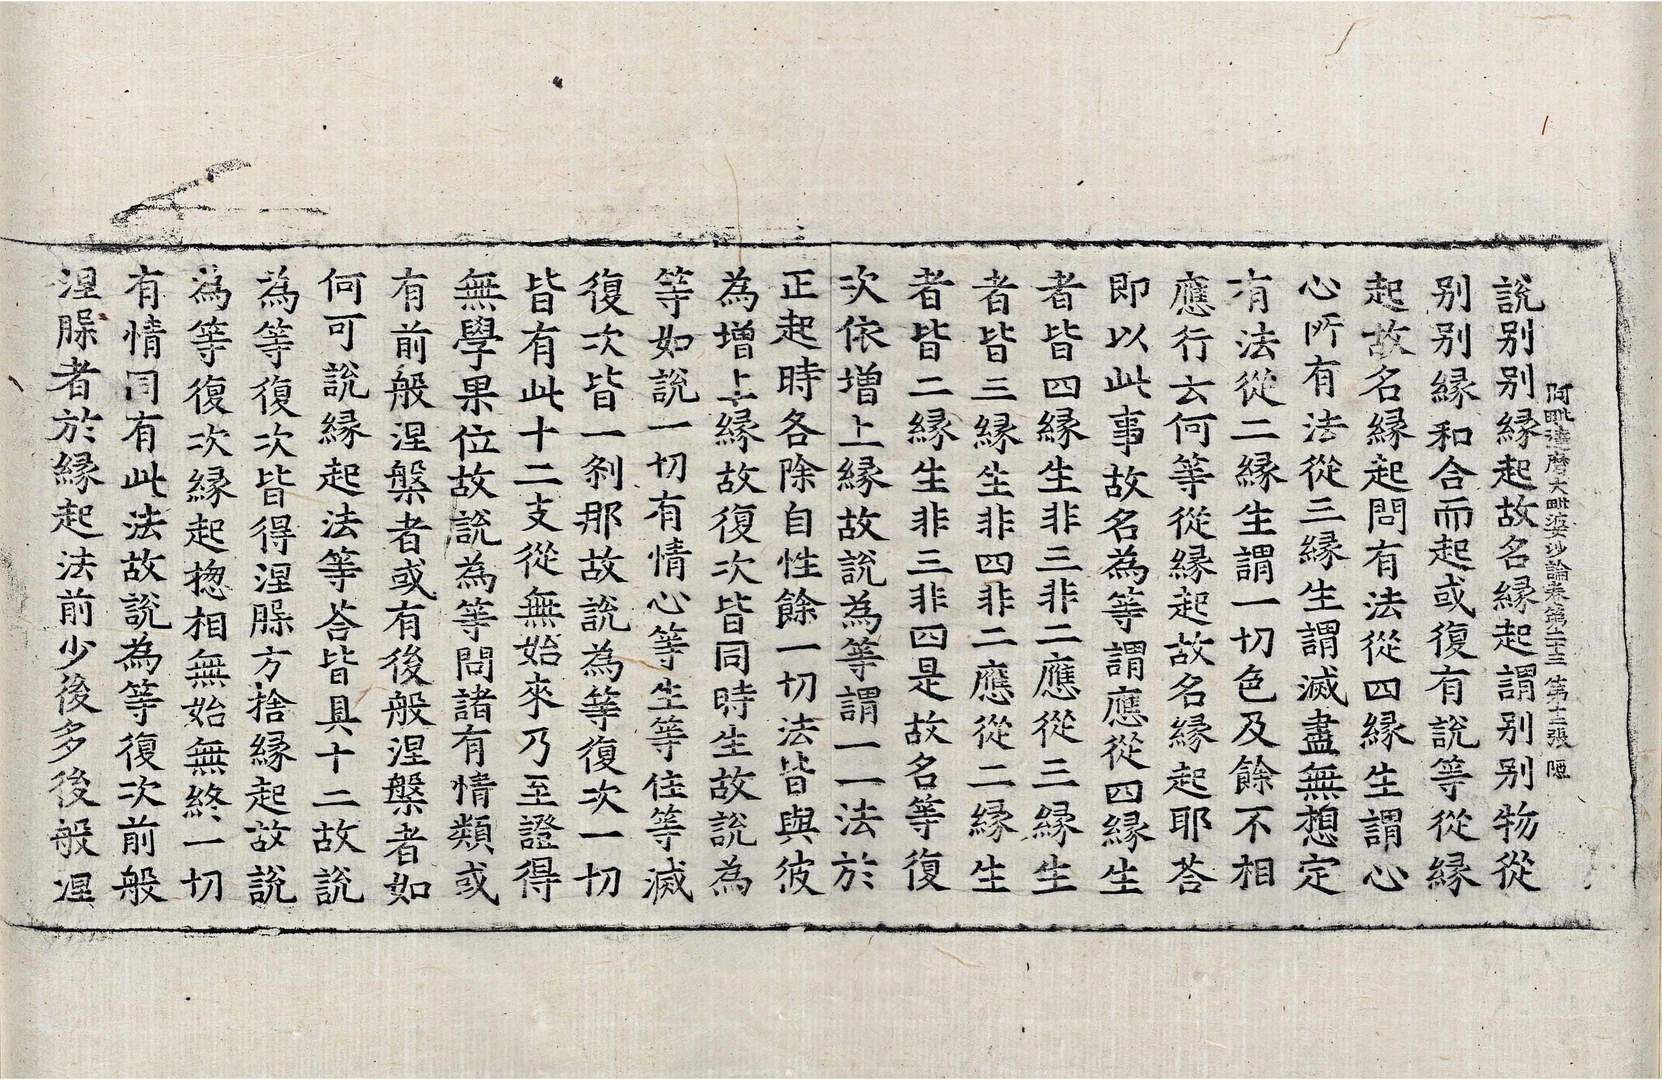 阿毗達磨大毗婆沙論卷第二十三 第十二張 隱
說别别縁起故名縁起謂别别物從
别别縁和合而起或復有說等從縁
起故名縁起問有法從四縁生謂心
心所有法從三縁生謂滅盡無想定
有法從二縁生謂一切色及餘不相
應行云何等從縁起故名縁起耶荅
即以此事故名為等謂應從四縁生
者皆四縁生非三非二應從三縁生
者皆三縁生非四非二應從二縁生
者皆二縁生非三非四是故名等復
次依增上縁故說為等謂一一法於
正起時各除自性餘一切法皆與彼
為增上縁故復次皆同時生故說為
等如說一切有情心等生等住等滅
復次皆一刹那故說為等復次一切
皆有此十二支從無始來乃至證得
無學果位故說為等問諸有情類或
有前般涅槃者或有後般涅槃者如
何可說縁起法等荅皆具十二故說
為等復次皆得涅槃方捨縁起故說
為等復次縁起揔相無始無終一切
有情同有此法故說為等復次前般
涅槃者於縁起法前少後多後般涅